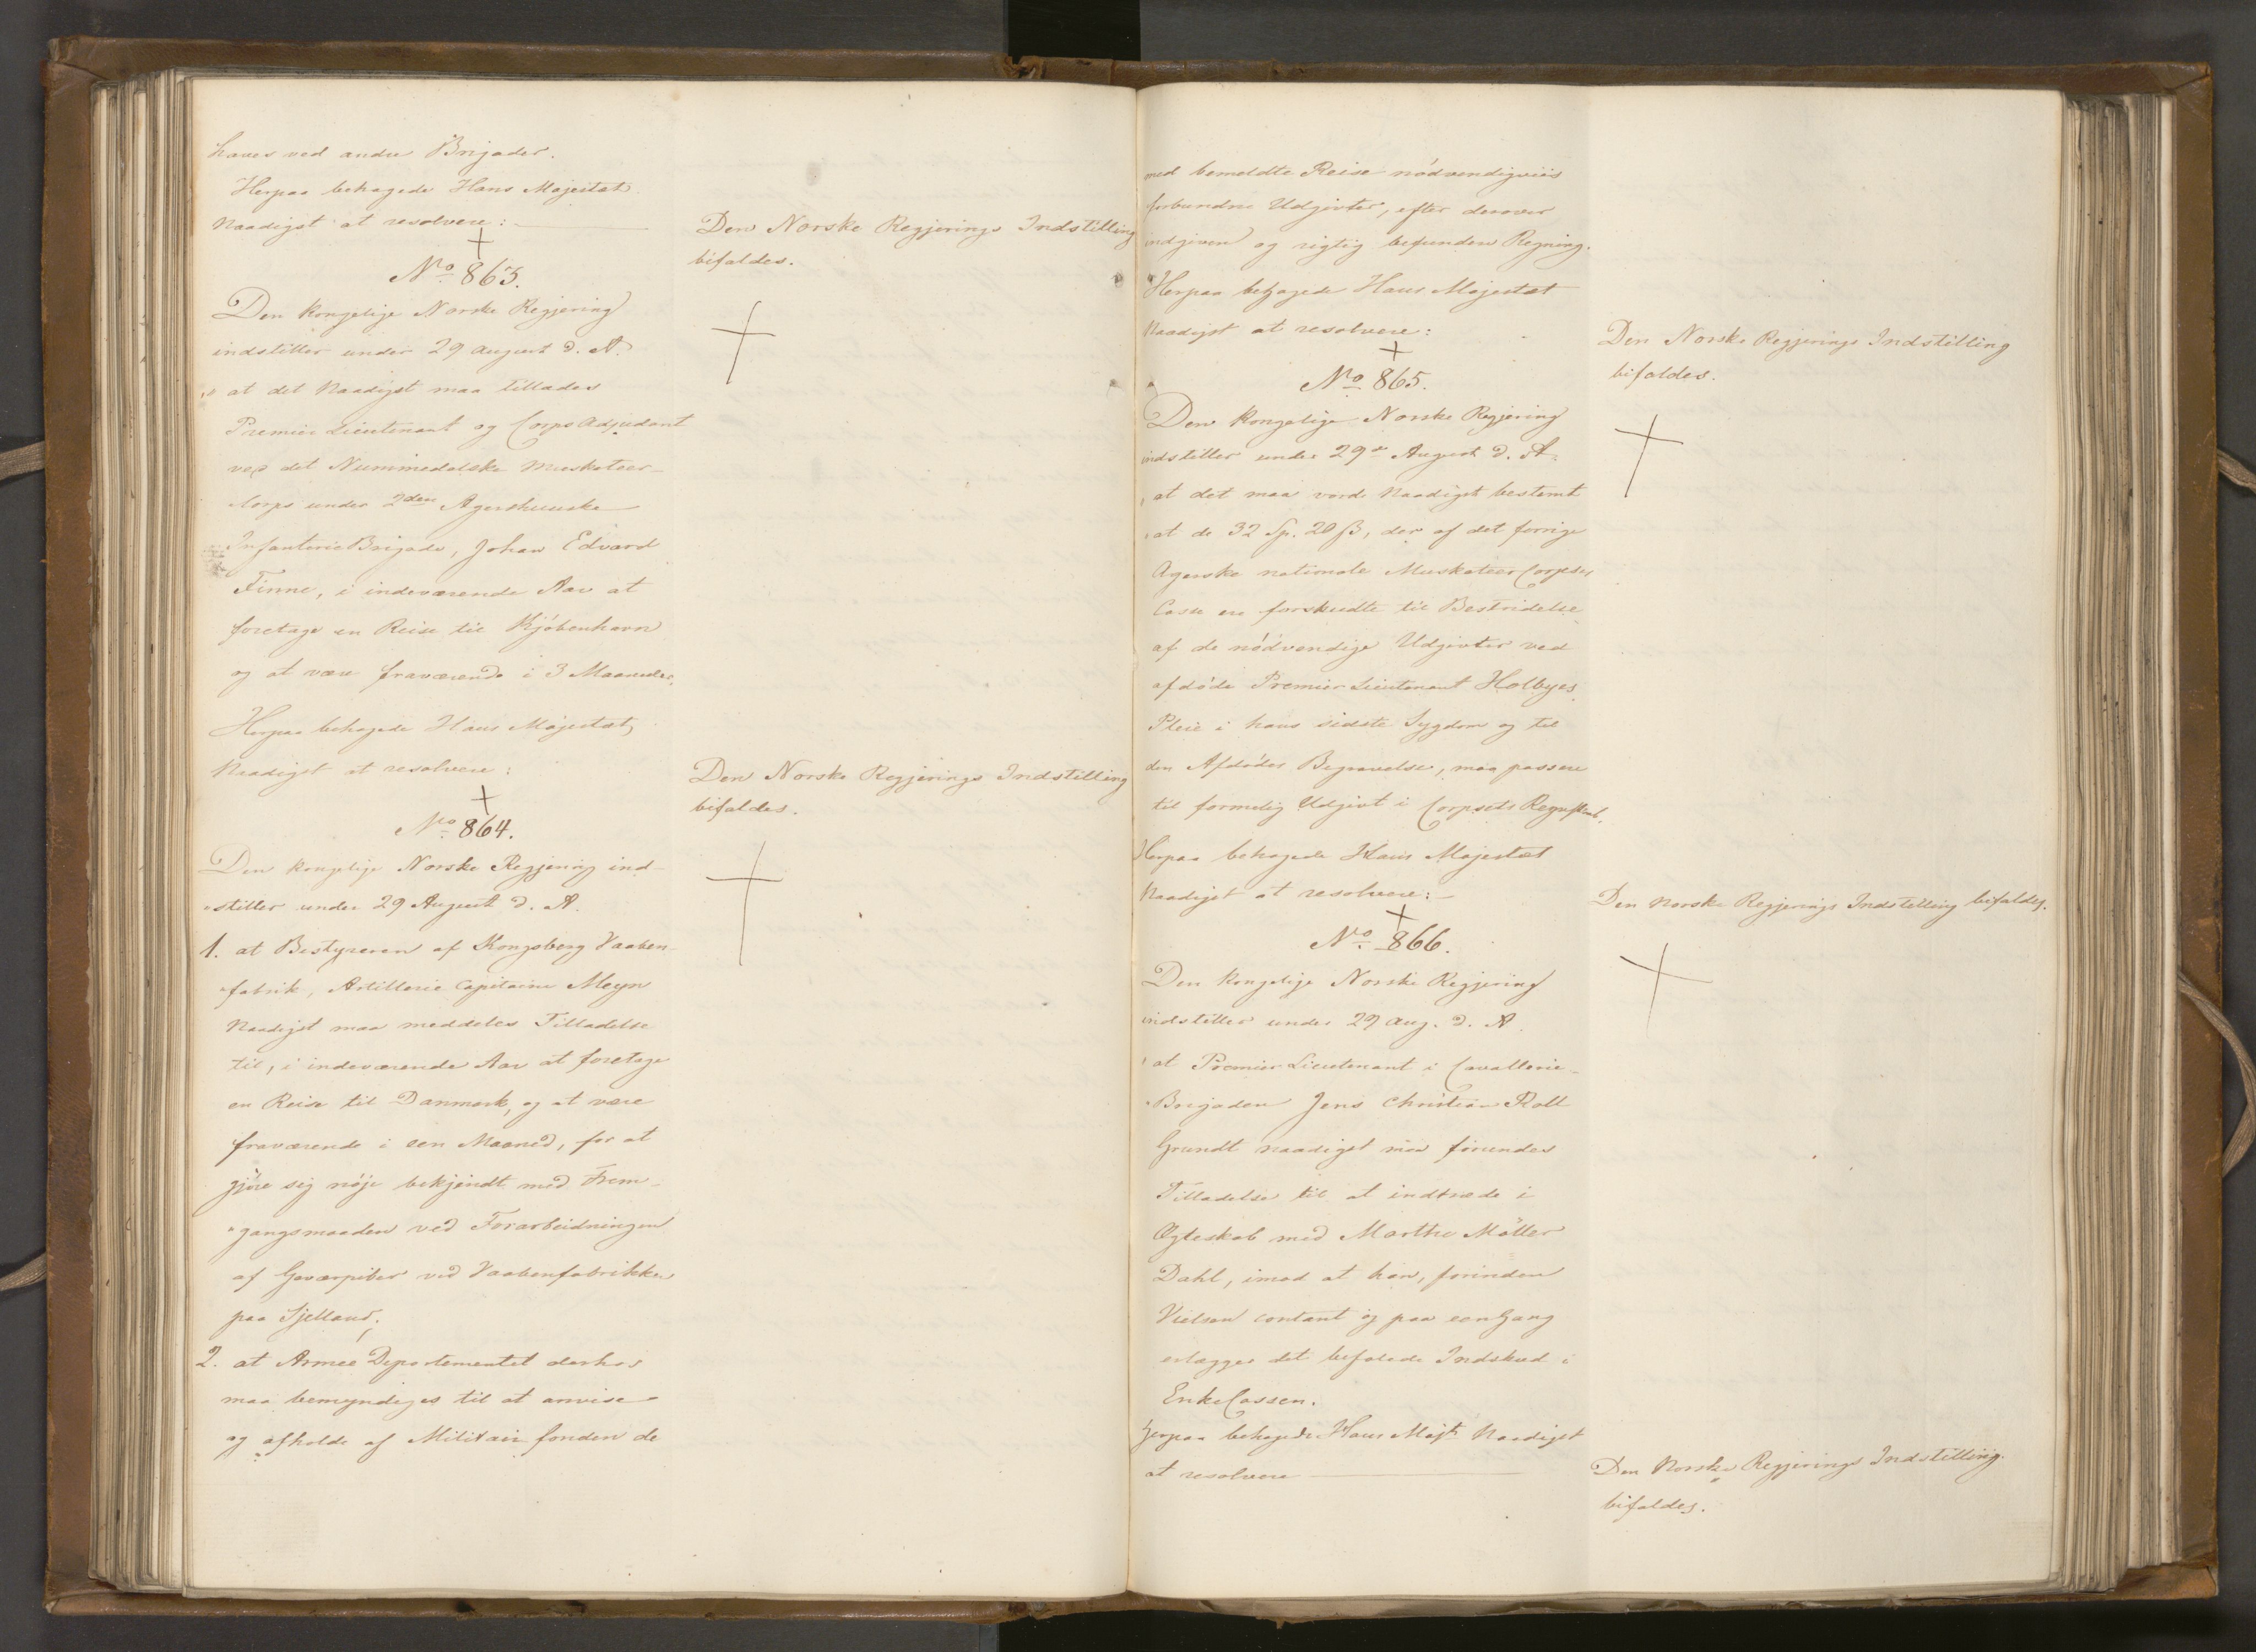 haves ved andre Brigader.
Herpaa behagede Hans Majestæt
Naadigst at resolvere:
Den Norske Regjerings Indstilling
bifaldes.
No 863.
Den kongelige Norske Regjering
indstiller under 29 august d. A.
at det Naadigst maa tillades
Premier Lieutenant og Corps Adjudant
ved det Nummedalske Musketeer-
Corps under 2den Agershuuske
Infanterie Brigade, Johan Edvard
Finne, i indeværende Aar at
foretage en Reise til Kjøbenhavn
og at være fraværende i 3 Maaneder.
Herpaa behagede Hans Majestæt
Naadigst at resolvere:
Den Norske Regjerings Indstilling
bifaldes.
No 864.
Den kongelige Norske Regjering ind-
stiller under 29 August d. A.
1. at Bestyreren af Kongsberg Vaaben-
fabrik, Artillerie Capitaine Meyn
Naadigst maa meddeles Tilladelse
til, i indeværende Aar at foretage
en Reise til Danmark, og at være
fraværende i een Maaned, for at
gjøre sig nøje bekjendt med Frem-
gangsmaaden ved Forarbeidningen
af Geværpiber ved Vaabenfabrikken
paa Sjelland;
2. at Armee Departementet derhos
maa bemyndiges til at anvise
og afholde af Militair fonden de
med bemeldte Reise nødvendigviis
forbundne Udgivter, efter derover
indgiven og rigtig befunden Regning.
Herpaa behagede Hans Majestæt
Naadigst at resolvere:
Den Norske Regjerings Indstilling
bifaldes.
No 865.
Den kongelige Norske Regjering
indstiller under 29de August d. A.
at det maa vorde Naadigst bestemt
at de 32 Sp. 20 ß, der af det forrige
Agerske nationale Musketeer Corpses
Casse ere forskudte til Bestridelse
af de nødvendige Udgivter ved
afdøde Premier Lieutenant Holbyes
Pleie i hans sidste Sygdom og til
den Afdødes Begravelse, maa passere
til formelig Udgivt i Corpsets Regnskab.
Herpaa behagede Hans Majestæt
Naadigst at resolvere:
Den Norske Regjerings Indstilling bifaldes.
No 866.
Den kongelige Norske Regjering
indstiller under 29 Aug. d. A.
at Premier Lieutenant i Cavallerie-
Brigaden Jens Christian Roll
Grundt naadigst maa forundes
Tilladelse til at indtræde i
Ægteskab med Marthe Møller
Dahl, imod at han, forinden
Vielsen contant og paa een Gang
erlægger det befalede Indskud i
Enke Cassen.
Herpaa behagede Hans Majt Naadigst
at resolvere
Den Norske Regjerings Indstilling
bifaldes.